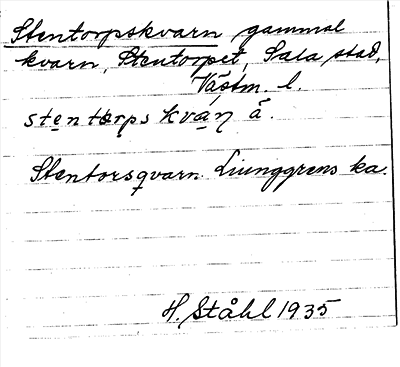 Stentorpskvarn gammal
kvarn, Stentorpet, Sala stad,
Västm. l.
stentorps kván å.
Stentorsqvarn. Liunggrens ka.
H. Ståhl 1935